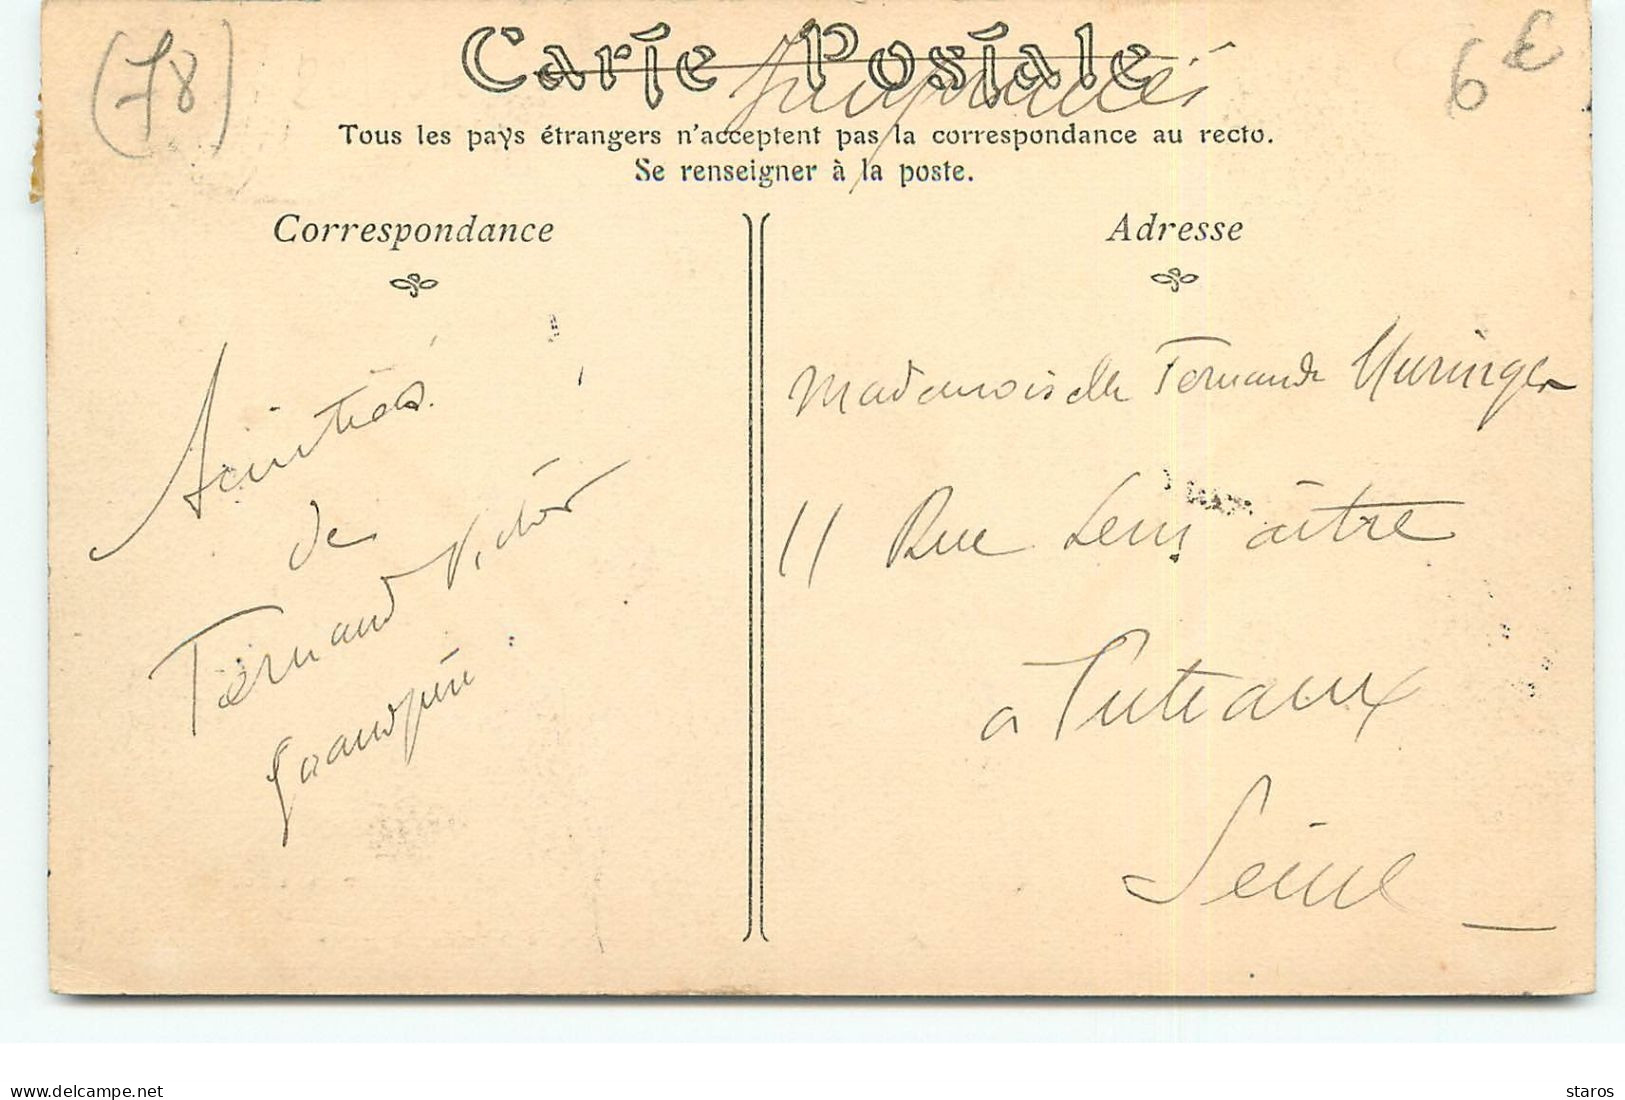 (78)
Carte Postale
Imprimés
6 €
Tous les pays étrangers n'acceptent pas la correspondance au recto.
Se renseigner à la poste.
Correspondance
Amitiés
de
Fernand Victor
Grandpère
Adresse
Mademoiselle Fernande Muringer
11 Rue Lemaître
à Puteaux
Seine
www.delcampe.net
staros